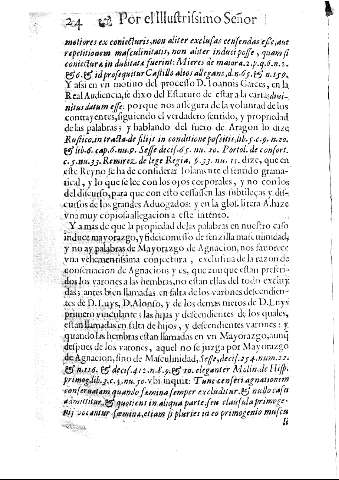 24 Por el Illustrissimo Señor
motiores ex coniecturis, non aliter exclusas censendas esse, aut
repetitorem masculinitatis, non aliter induci posse, quam si
coniectura indubitata fuerint: Mieres de maiora. 2. p. q. 6. n. 2.
& 6. & id prosequitur Castillo alios allegans, d. n. 65. & n. 159.
Y assi en vn motiuo del processo D. Ioannis Garces, en la
Real Audiencia, se dixo del Estatuto de estar a la carta: divi-
nitus datum esse. porque nos assegura de la voluntad de los
contrayentes, siguiendo el verdadero sentido, y propriedad
de las palabras; y hablando del fuero de Aragon lo dize
Rustico, in tracta de filijs in conditione positis, lib. 5. c. 9. n. 20.
& lib. 6. cap. 6. nu. 9. Sesse decis. 65. nu. 10. Portol. de consort.
c. 5. nu. 33. Ramirez, de lege Regia, §. 33. nu. 15. dize, que en
este Reyno se ha de considerar solamente el sentido grama-
tical, y lo que se lee con los ojos corporales, y no con los
del discurso, para que con esto cessassen las sutilezas y dis-
cursos de los grandes Aduogados: y en la glos. litera A. haze
vna muy copiosa allegacion a este intento.
Y a mas de que la propiedad de las palabras en nuestro caso
induce mayorazgo, y fideicomisso de senzilla masculinidad,
y no ay palabras de Mayorazgo de Agnacion, nos fauorece
vna vehementissima conjectura, exclusiua de la razon de
conseruacion de Agnacion, y es, que aunque estan preferi-
dos los varones a las hembras, no estan ellas del todo exclu-
das; antes bien llamadas en falta de los varones descendien-
tes de D. Luys, D. Alonso, y de los demas nietos de D. Luys
primero vinculante: las hijas y descendientes de los quales,
estan llamadas en falta de hijos, y descendientes varones: y
quando las hembras estan llamadas en vn Mayorazgo, aunq̃
despues de los varones, aquel no se juzga por Mayorazgo
de Agnacion, sino de Masculinidad, Sesse, decis. 254. num. 22.
& n. 116. & decis. 412. n. 8. 9. & 10. eleganter Molin. de Hisp.
primog. lib. 3. c. 5. nu. 50. vbi inquit: Tunc censeri agnationem
conseruatam quando fœmina semper excluditur, & nullo casu
admittitur, & quotient in aliqua parte, seu clausula primoge-
nij vocantur fœmina, etiam si pluries in eo primogenio mascu
li